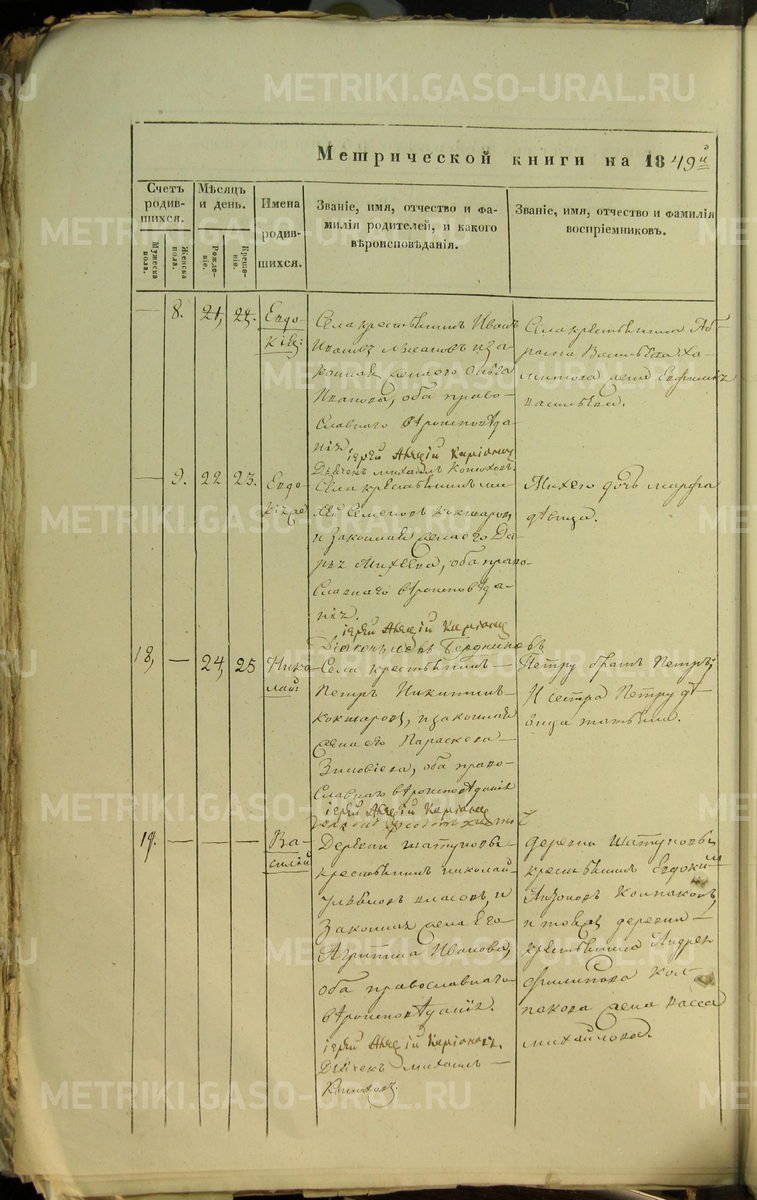 METRIKI.GASO-URAL.RU
Метрической книги на 1849й
Счетъ родив-шихся.
Мужеска пола.
Женска пола.
Мѣсяцъ и день.
Рожде-ніе.
Креще-ніе.
Имена родив-шихся.
Званіе, имя, отчество и фа-
милія родителей, и какого
вѣроисповѣданія.
Званіе, имя, отчество и фамилія
воспріемниковъ.
— 8. 21, 24.
Евдо-
кія;
Села крестьянинъ Иванъ
Ивановъ и за-
конная жена его Ольга
Иванова, оба право-
славнаго вѣроисповѣда-
нія.
іерей
Дьячекъ михаилъ Конюховъ.
Села крестьянина Аб-
рама Васильева Ха-
митова жена Евфимія
васильева.
— 9. 22 23.
Евдо-
кія
Села крестьянинъ ми-
хей Семеновъ Кокшаровъ
и законная жена его Да-
рья Михеева, оба право-
славнаго вѣроисповѣда-
нія.
іерей
Діаконъ
Михея дочь марфа
дѣвица.
18, — 24, 25
Нико-
лай
Села крестьянинъ —
Петръ Никитинъ
Кокшаровъ, и законная
жена его Параскева
Зиновіева, оба право-
славнаго вѣроисповѣданія
іерей
Петру братъ Петръ
И сестра Петру дѣ-
вица татьяна.
19. — — —
Ва-
силій
Деревни шатуновы
крестьянинъ николай
власовъ, и
Законная жена Его
Агрипина Иванова,
оба православнаго
вѣроисповѣданія.
іерей
Дьячекъ михаилъ —
Конюховъ.
деревни Шатуновы
крестьянинъ Евдоким
Колпаковъ,
и тояжъ деревни —
крестьянина Андрея
Филипова Кол-
пакова жена васса
михайлова.